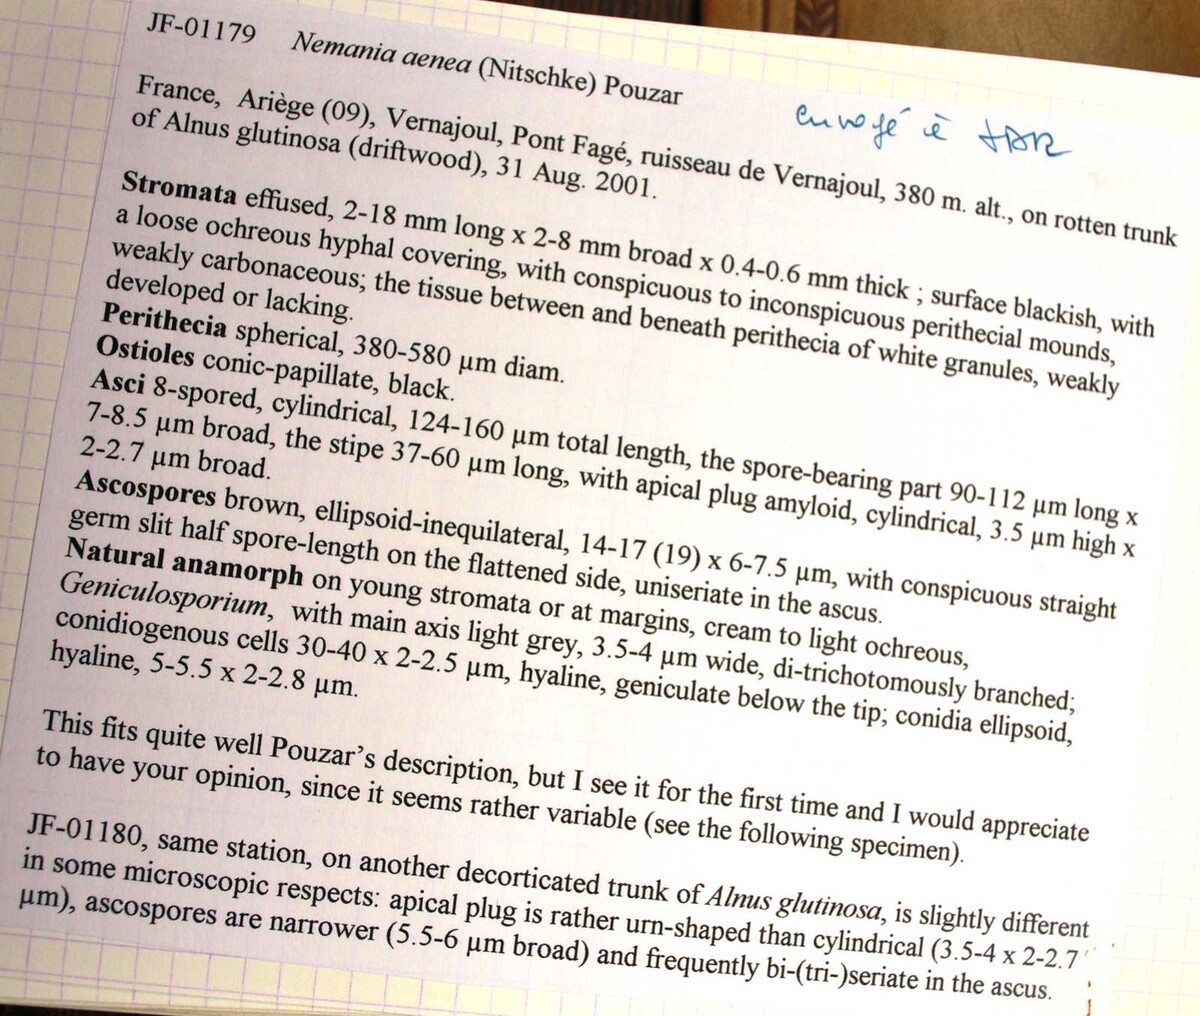 JF-01179 Nemania aenea (Nitschke) Pouzar
envoyé à
France, Ariège (09), Vernajoul, Pont Fagé, ruisseau de Vernajoul, 380 m. alt., on rotten trunk
of Alnus glutinosa (driftwood), 31 Aug. 2001.
Stromata effused, 2-18 mm long x 2-8 mm broad x 0.4-0.6 mm thick ; surface blackish, with
a loose ochreous hyphal covering, with conspicuous to inconspicuous perithecial mounds,
weakly carbonaceous; the tissue between and beneath perithecia of white granules, weakly
developed or lacking.
Perithecia spherical, 380-580 µm diam.
Ostioles conic-papillate, black.
Asci 8-spored, cylindrical, 124-160 µm total length, the spore-bearing part 90-112 µm long x
7-8.5 µm broad, the stipe 37-60 µm long, with apical plug amyloid, cylindrical, 3.5 µm high x
2-2.7 µm broad.
Ascospores brown, ellipsoid-inequilateral, 14-17 (19) x 6-7.5 µm, with conspicuous straight
germ slit half spore-length on the flattened side, uniseriate in the ascus.
Natural anamorph on young stromata or at margins, cream to light ochreous,
Geniculosporium, with main axis light grey, 3.5-4 µm wide, di-trichotomously branched;
conidiogenous cells 30-40 x 2-2.5 µm, hyaline, geniculate below the tip; conidia ellipsoid,
hyaline, 5-5.5 x 2-2.8 µm.
This fits quite well Pouzar's description, but I see it for the first time and I would appreciate
to have your opinion, since it seems rather variable (see the following specimen).
JF-01180, same station, on another decorticated trunk of Alnus glutinosa, is slightly different
in some microscopic respects: apical plug is rather urn-shaped than cylindrical (3.5-4 x 2-2.7
µm), ascospores are narrower (5.5-6 µm broad) and frequently bi-(tri-)seriate in the ascus.